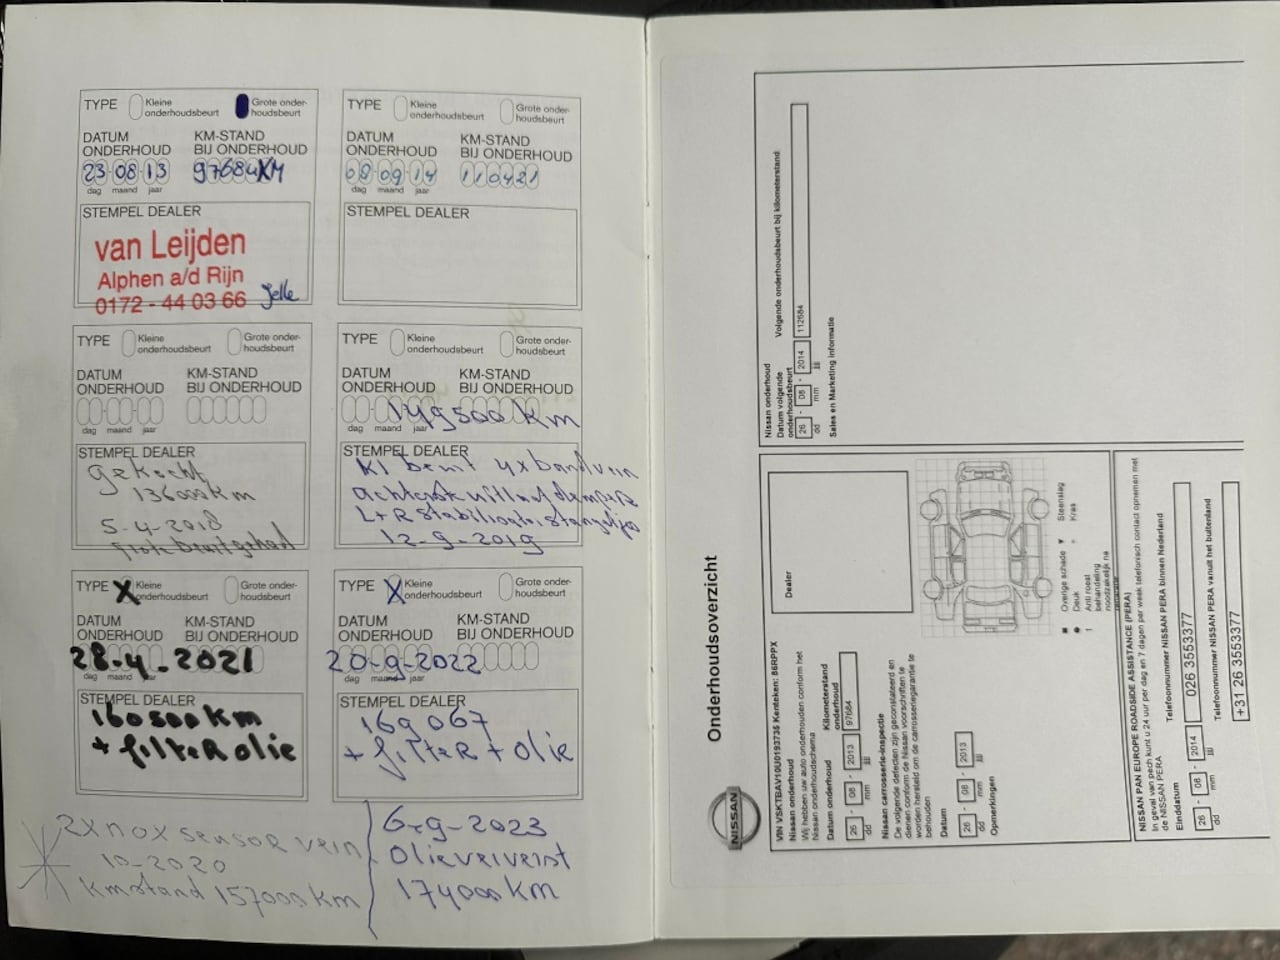 TYPE Kleine onderhoudsbeurt Grote onder-houdsbeurt
DATUM ONDERHOUD KM-STAND BIJ ONDERHOUD
23-08-13 97684KM
dag maand jaar
STEMPEL DEALER
van Leijden
Alphen a/d Rijn
0172 - 44 03 66 Jelle
TYPE Kleine onderhoudsbeurt Grote onder-houdsbeurt
DATUM ONDERHOUD KM-STAND BIJ ONDERHOUD
08-09-14 110421
dag maand jaar
STEMPEL DEALER
TYPE Kleine onderhoudsbeurt Grote onder-houdsbeurt
DATUM ONDERHOUD KM-STAND BIJ ONDERHOUD
dag maand jaar
STEMPEL DEALER
gekocht
136000km
5-4-2018
TYPE Kleine onderhoudsbeurt Grote onder-houdsbeurt
DATUM ONDERHOUD KM-STAND BIJ ONDERHOUD
149500 km
dag maand jaar
STEMPEL DEALER
Kl beurt 4x band
L+R
12-9-2019
TYPE X Kleine onderhoudsbeurt Grote onder-houdsbeurt
DATUM ONDERHOUD KM-STAND BIJ ONDERHOUD
28-4-2021
dag maand jaar
STEMPEL DEALER
160500km
+ filteR olie
TYPE X Kleine onderhoudsbeurt Grote onder-houdsbeurt
DATUM ONDERHOUD KM-STAND BIJ ONDERHOUD
20-9-2022
dag maand jaar
STEMPEL DEALER
169067
+ filteR + olie
2x nox sensor
10-2020
Kmstand 157000 km
6-9-2023
174000 km
NISSAN
Onderhoudsoverzicht
VIN VSKTBAV10U0193735 Kenteken: 86RPPX
Nissan onderhoud
Wij hebben uw auto onderhouden conform het
Nissan onderhoudschema
Datum onderhoud Kilometerstand onderhoud
26 - 08 - 2013 97684
dd mm jjjj
Nissan carrosserie-inspectie
De volgende defecten zijn geconstateerd en
dienen conform de Nissan voorschriften te
worden hersteld om de carrosseriegarantie te
behouden
Datum
26 - 08 - 2013
dd mm jjjj
Opmerkingen
Dealer
Overige schade Steenslag
Deuk Kras
Anti roest
behandeling
noodzakelijk na
reparatie
Nissan onderhoud
Datum volgende onderhoudsbeurt Volgende onderhoudsbeurt bij kilometerstand
26 - 08 - 2014 112684
dd mm jjjj
Sales en Marketing informatie
NISSAN PAN EUROPE ROADSIDE ASSISTANCE (PERA)
In geval van pech kunt u 24 uur per dag en 7 dagen per week telefonisch contact opnemen met
de NISSAN PERA
Einddatum Telefoonnummer NISSAN PERA binnen Nederland
26 - 08 - 2014 026 3553377
dd mm jjjj
Telefoonnummer NISSAN PERA vanuit het buitenland
+31 26 3553377